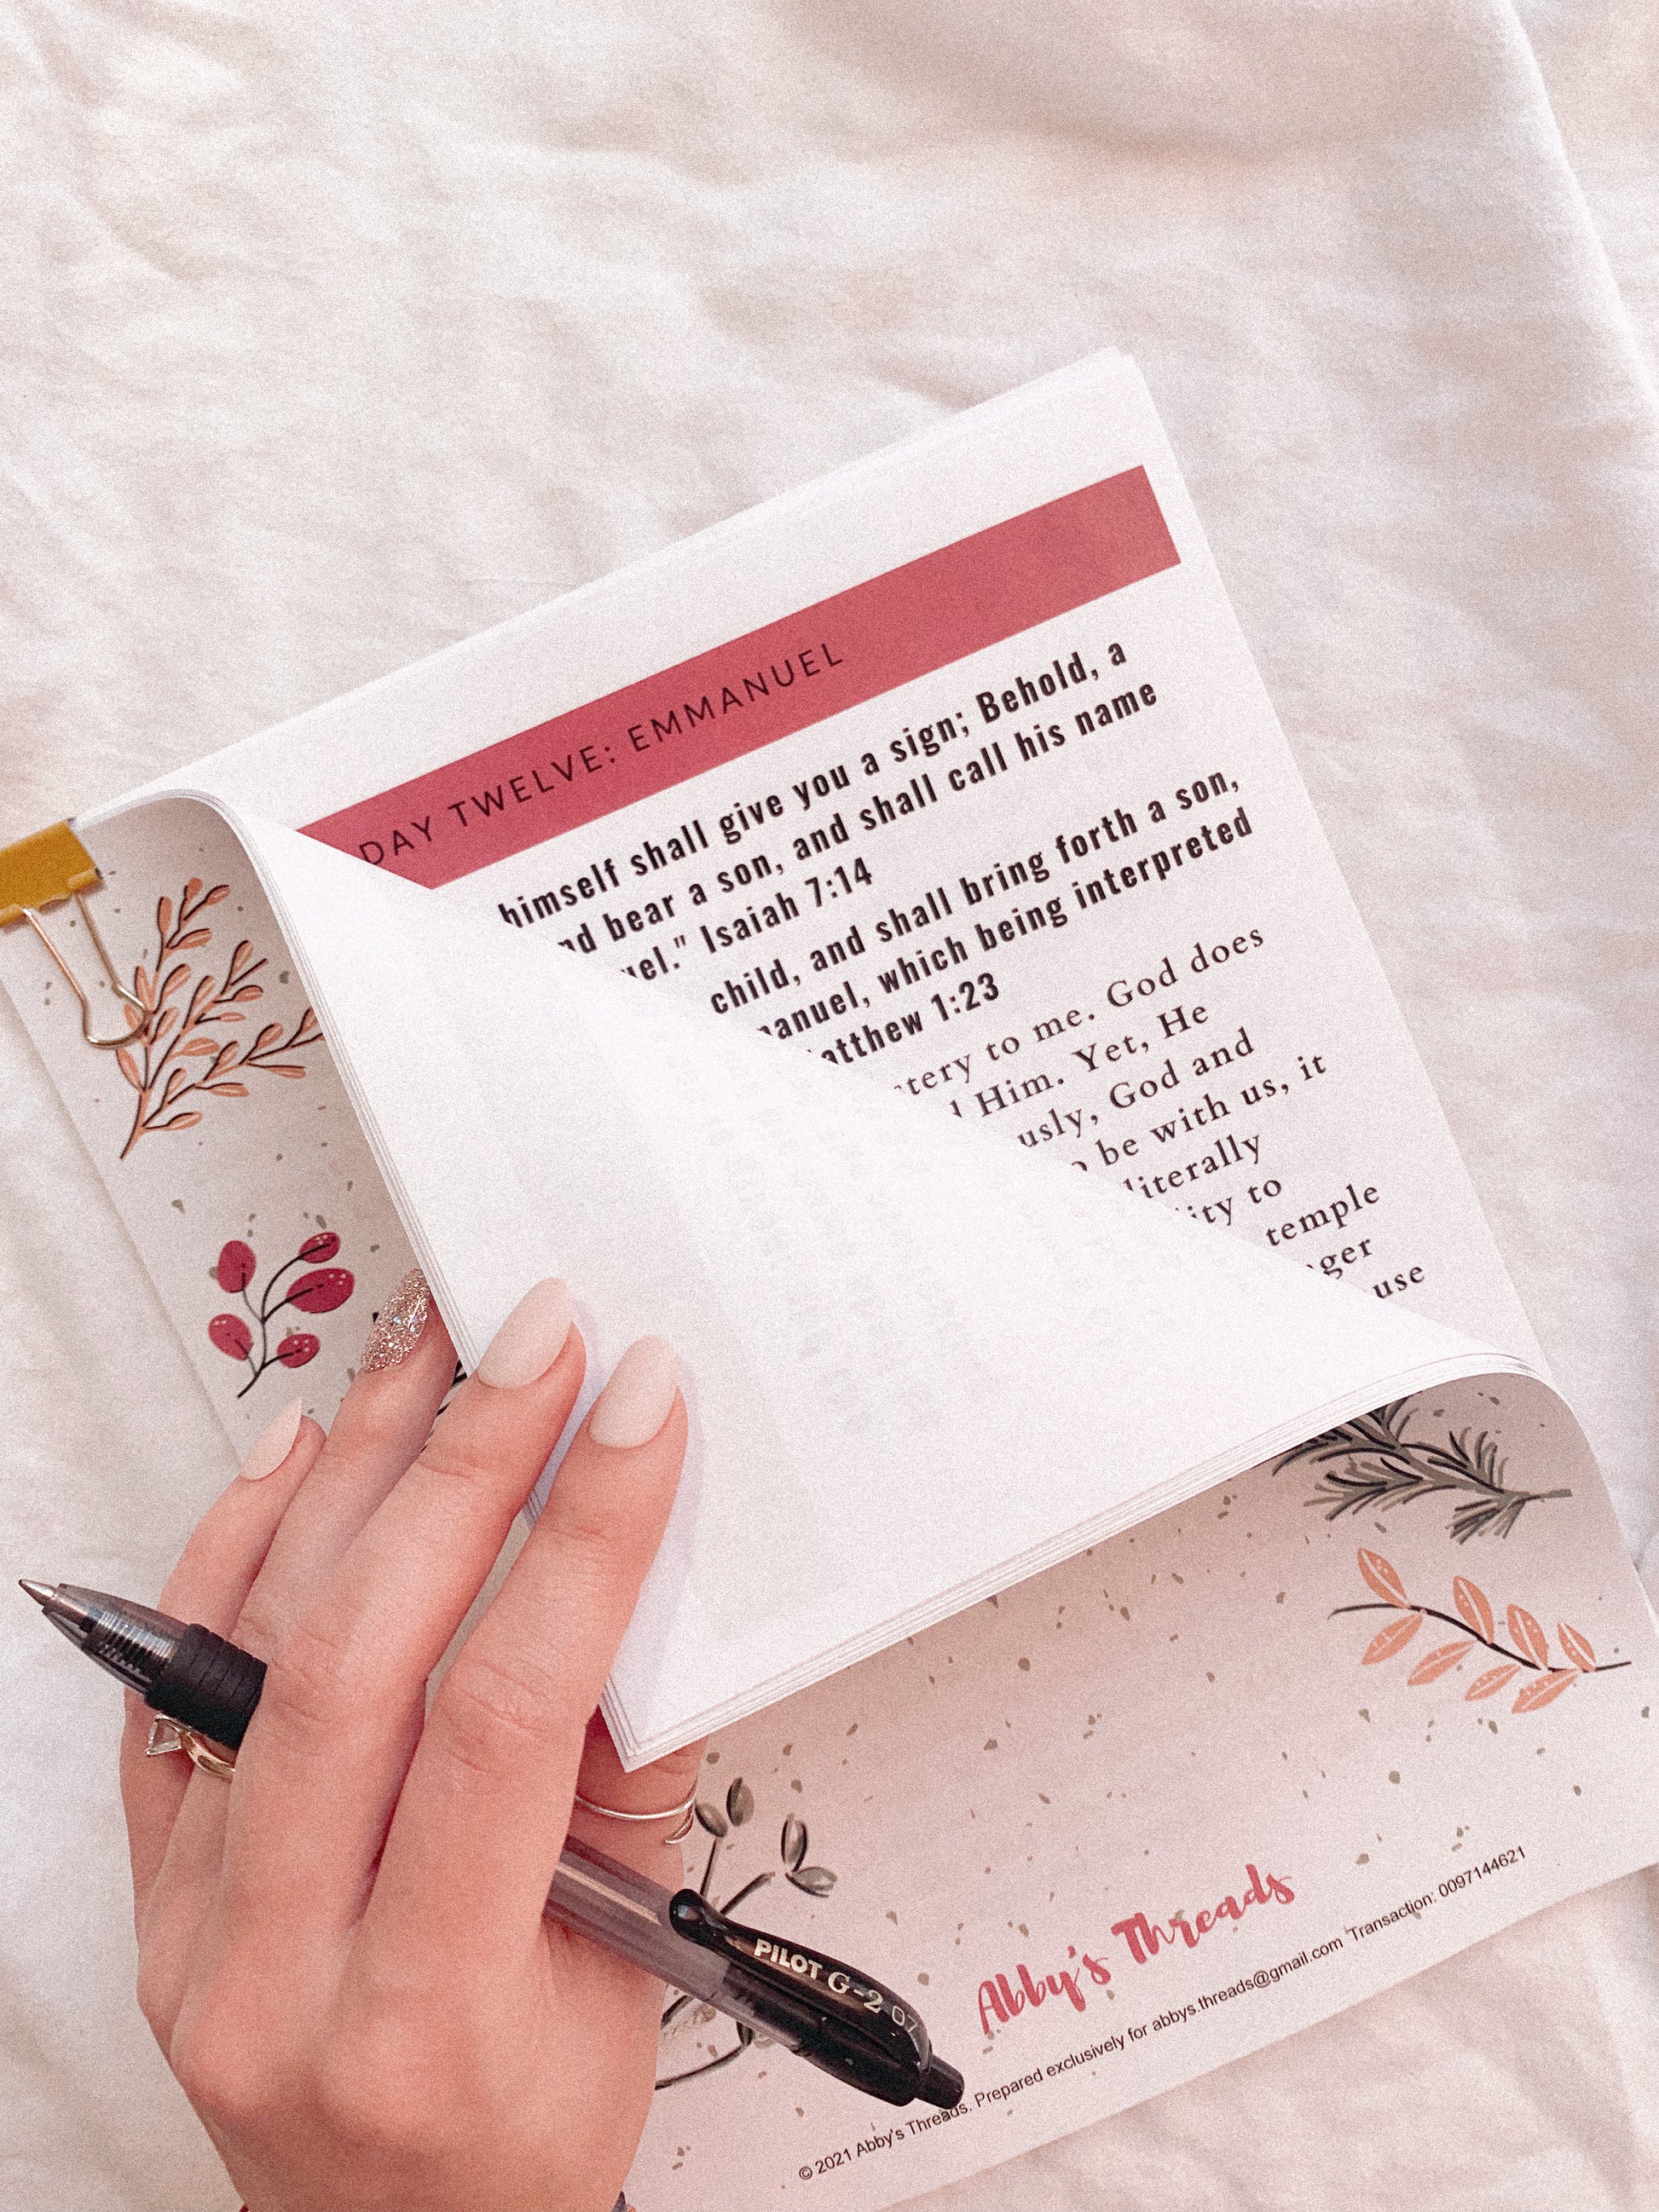 DAY TWELVE: EMMANUEL
himself shall give you a sign; Behold, a
bear a son, and shall call his name
Isaiah 7:14
child, and shall bring forth a son,
which being interpreted
1:23
to me. God does
Him. Yet, He
God and
be with us, it
literally
to
temple
use
PILOT G-2 07
Abby's Threads
© 2021 Abby's Threads. Prepared exclusively for abbys.threads@gmail.com Transaction: 0097144621